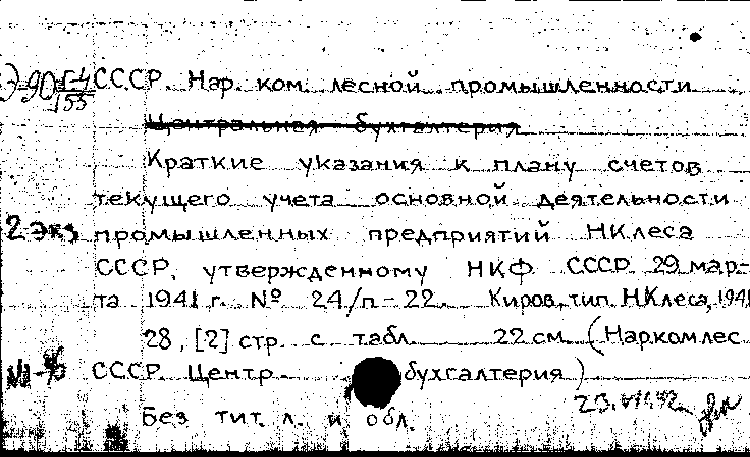 Э-90 Г-4/155 СССР. Нар. ком. лесной промышленности
Центральная бухгалтерия
Краткие указания к плану счетов
текущего учета основной деятельности
2 экз промышленных предприятий НКлеса
СССР, утвержденному НКФ СССР 29 мар-
та 1941 г. № 24/п-22. Киров, тип. НКлеса, 1941
28, [2] стр. с табл. 22 см. (Наркомлес
СССР. Центр. бухгалтерия)
23.VII.42
Без тит. л. и обл.